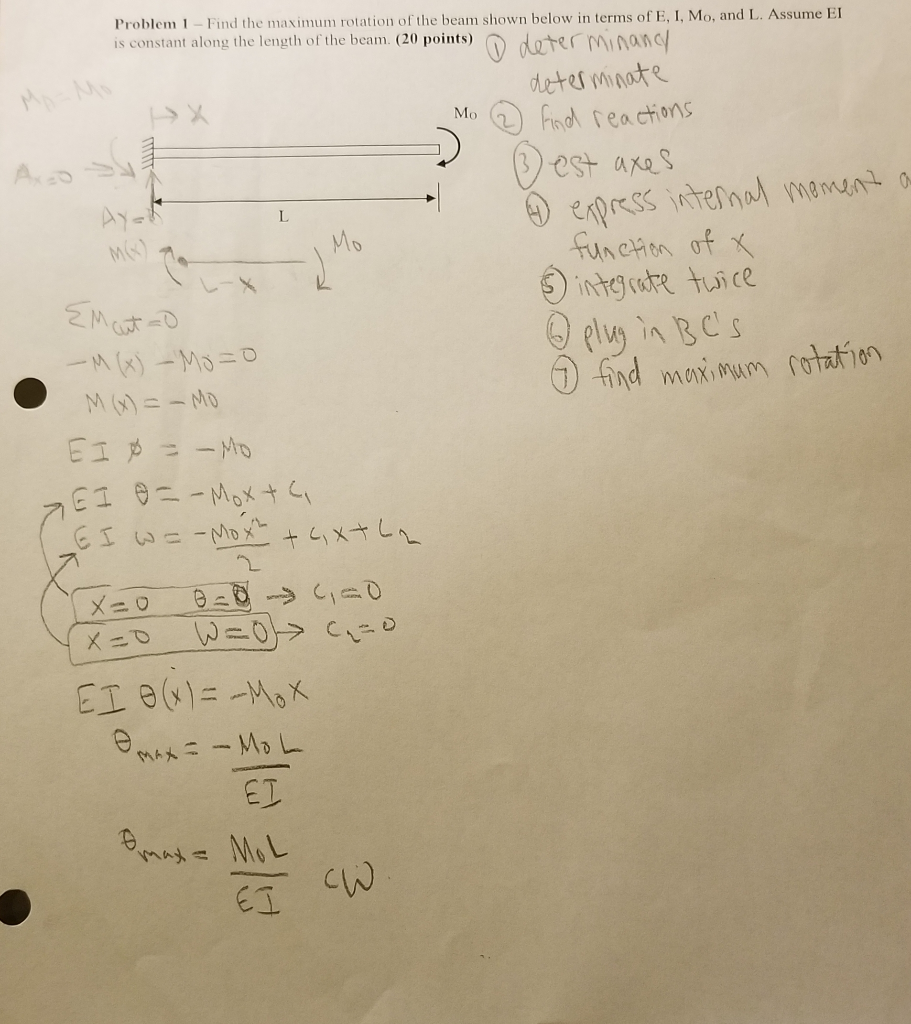 Problem 1 – Find the maximum rotation of the beam shown below in terms of E, I, Mo, and L. Assume EI
is constant along the length of the beam. (20 points)
① determinancy
determinate
② find reactions
③ est axes
④ express internal moment a
function of x
⑤ integrate twice
⑥ plug in BC's
⑦ find maximum rotation
MA=Mo
X
Mo
Ax=0
Ay=
L
M(x)
Mo
L-x
ΣMcut=0
-M(x) -Mo=0
M(x) = -Mo
EI ϕ = -Mo
EI θ = -Mox + C1
EI w = -Mox²/2 + C1x + C2
x=0 θ=0 → C1=0
x=0 w=0 → C2=0
EI θ(x) = -Mox
θmax = -MoL/EI
θmax = MoL/EI CW